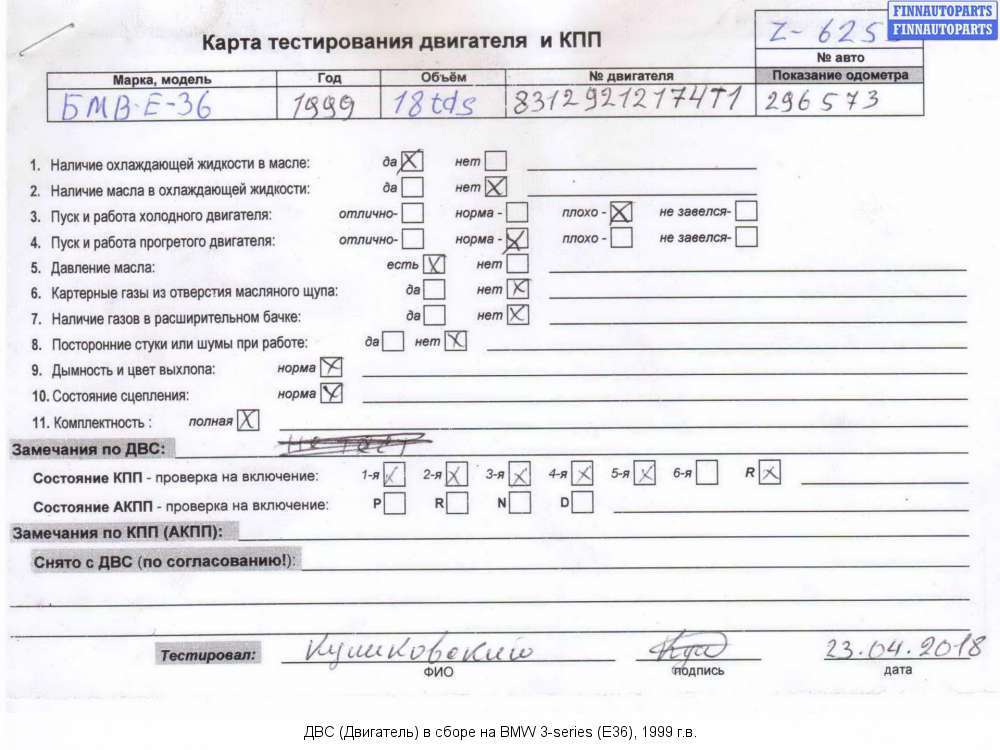 FINNAUTOPARTS
FINNAUTOPARTS
Z-625
Карта тестирования двигателя и КПП
№ авто
Марка, модель Год Объём № двигателя Показание одометра
БМВ-Е-36 1999 18tds 83129212174T1 296573
1. Наличие охлаждающей жидкости в масле: да нет
2. Наличие масла в охлаждающей жидкости: да нет
3. Пуск и работа холодного двигателя: отлично- норма - плохо - не завелся-
4. Пуск и работа прогретого двигателя: отлично- норма - плохо - не завелся-
5. Давление масла: есть нет
6. Картерные газы из отверстия масляного щупа: да нет
7. Наличие газов в расширительном бачке: да нет
8. Посторонние стуки или шумы при работе: да нет
9. Дымность и цвет выхлопа: норма
10. Состояние сцепления: норма
11. Комплектность : полная
Замечания по ДВС:
Состояние КПП - проверка на включение: 1-я 2-я 3-я 4-я 5-я 6-я R
Состояние АКПП - проверка на включение: P R N D
Замечания по КПП (АКПП):
Снято с ДВС (по согласованию!):
Тестировал: Куликовский 23.04.2018
ФИО подпись дата
ДВС (Двигатель) в сборе на BMW 3-series (E36), 1999 г.в.